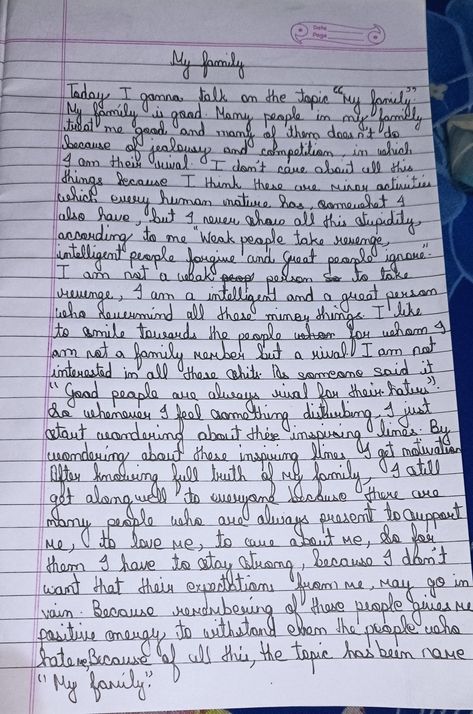 Date
Page
My family
Today I gonna talk on the topic "My family."
My family is good. Many people in my family
treat me good and many of them does't do
because of jealousy and competition, in which
I am their rival. I don't care about all this
things because I think these are minor activities
which every human nature has, somewhat I
also have, but I never show all this stupidity,
according to me "Weak people take revenge,
intelligent people forgive and Great people ignore".
I am not a weak person to take
revenge, I am a intelligent and a great person
who all these things. I like
to smile towards the people for whom I
am not a family member but a rival. I am not
interested in all these shits. As someone said it
"Good people are always rival for their haters".
So whenever I feel something disturbing, I just
start wondering about these inspiring lines. By
wondering about these inspiring lines I get motivation
After knowing full truth of my family, I still
get along well to everyone because there are
many people who are always present to support
me, to love me, to care about me, So for
them I have to stay strong, because I don't
want that their expectations from me, may go in
vain. Because remembering of these people gives me
positive energy to withstand even the people who
hate me, Because of all this, the topic has been name
"My family".